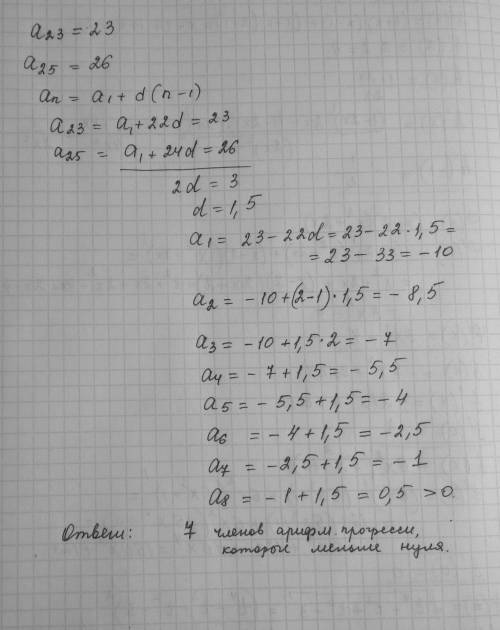 a₂₃ = 23
a₂₅ = 26
aₙ = a₁ + d(n-1)
a₂₃ = a₁ + 22d = 23
a₂₅ = a₁ + 24d = 26
2d = 3
d = 1,5
a₁ = 23 - 22d = 23 - 22·1,5 =
= 23 - 33 = -10
a₂ = -10 + (2-1)·1,5 = -8,5
a₃ = -10 + 1,5·2 = -7
a₄ = -7 + 1,5 = -5,5
a₅ = -5,5 + 1,5 = -4
a₆ = -4 + 1,5 = -2,5
a₇ = -2,5 + 1,5 = -1
a₈ = -1 + 1,5 = 0,5 > 0.
Ответ: 7 членов арифм. прогресси,
которые меньше нуля.